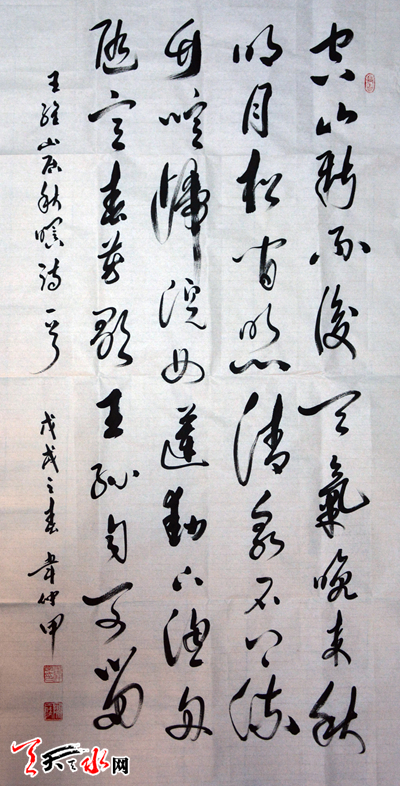 空山新雨後天氣晚来秋
明月松間照清泉石上流
竹喧歸浣女蓮動下漁舟
随意春芳歇王孫自可留
王維山居秋暝詩一首 戊戌之春 韋仲甲
天天天水网